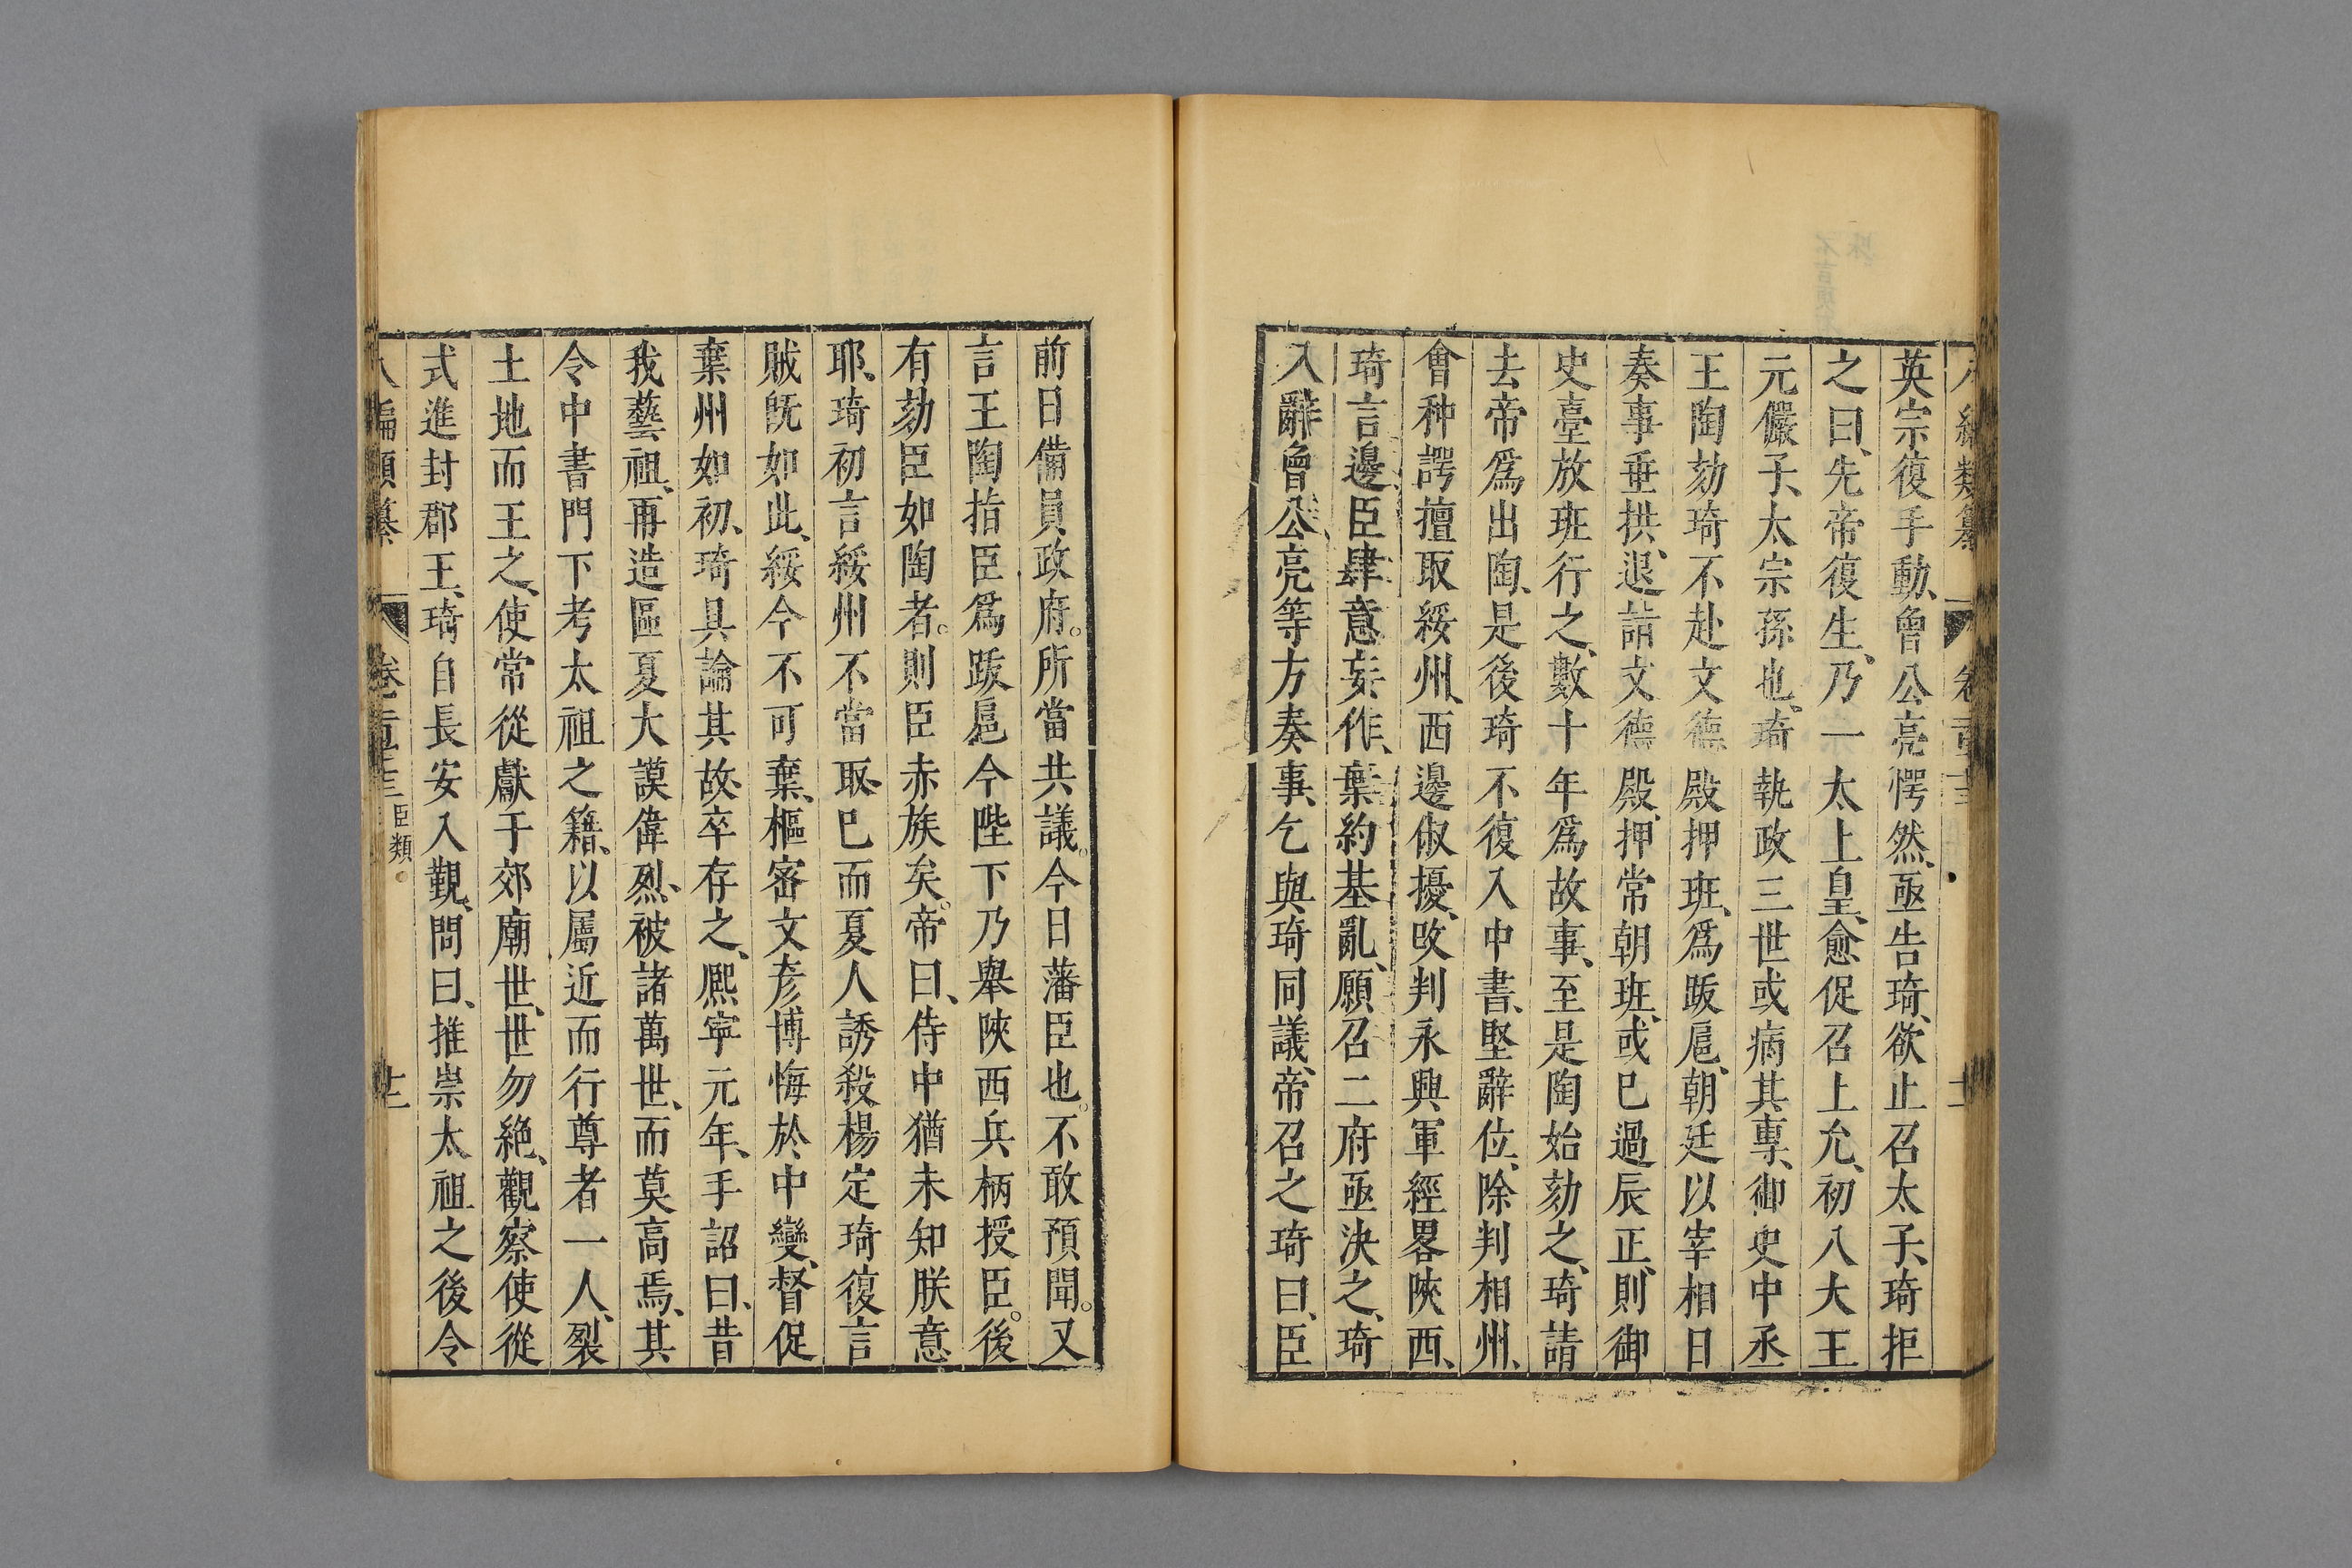 英宗復手動、曾公亮愕然、亟告琦、欲止召太子、琦拒
之曰、先帝復生、乃一太上皇、愈促召上允、初八大王
元儼子、太宗孫也、琦執政三世或病其專、御史中丞
王陶劾琦不赴文德殿押班、爲跋扈、朝廷以宰相日
奏事垂拱、退詣文德殿、押常朝班、或巳過辰正、則御
史臺放班行之、數十年爲故事、至是陶始劾之、琦請
去帝爲出陶、是後琦不復入中書、堅辭位、除判相州、
會种諤擅取綏州、西邊俶擾、改判永興軍經畧陝西、
琦言邊臣肆意妄作、葉約基亂、願召二府亟決之、琦
入辭曾公亮等方奏事、乞與琦同議、帝召之琦曰、臣
前日備員政府。所當共議。今日藩臣也。不敢預聞。又
言王陶指臣爲跋扈今陛下乃舉陝西兵柄授臣。後
有劾臣如陶者。則臣赤族矣。帝曰、侍中猶未知朕意
耶、琦初言綏州不當取、巳而夏人誘殺楊定琦復言
賊旣如此、綏今不可棄、樞密文彥博悔於中變、督促
棄州如初、琦具論其故、卒存之、熈寧元年、手詔曰、昔
我藝祖、再造區夏大謨偉烈、被諸萬世、而莫高焉、其
令中書門下考太祖之籍、以屬近而行尊者一人、裂
土地而王之、使常從獻于郊廟世、世勿絶、觀察使從
式進封郡王、琦自長安入覲、問曰、推崇太祖之後令
八編類纂 卷一百二十三 臣類。 十二